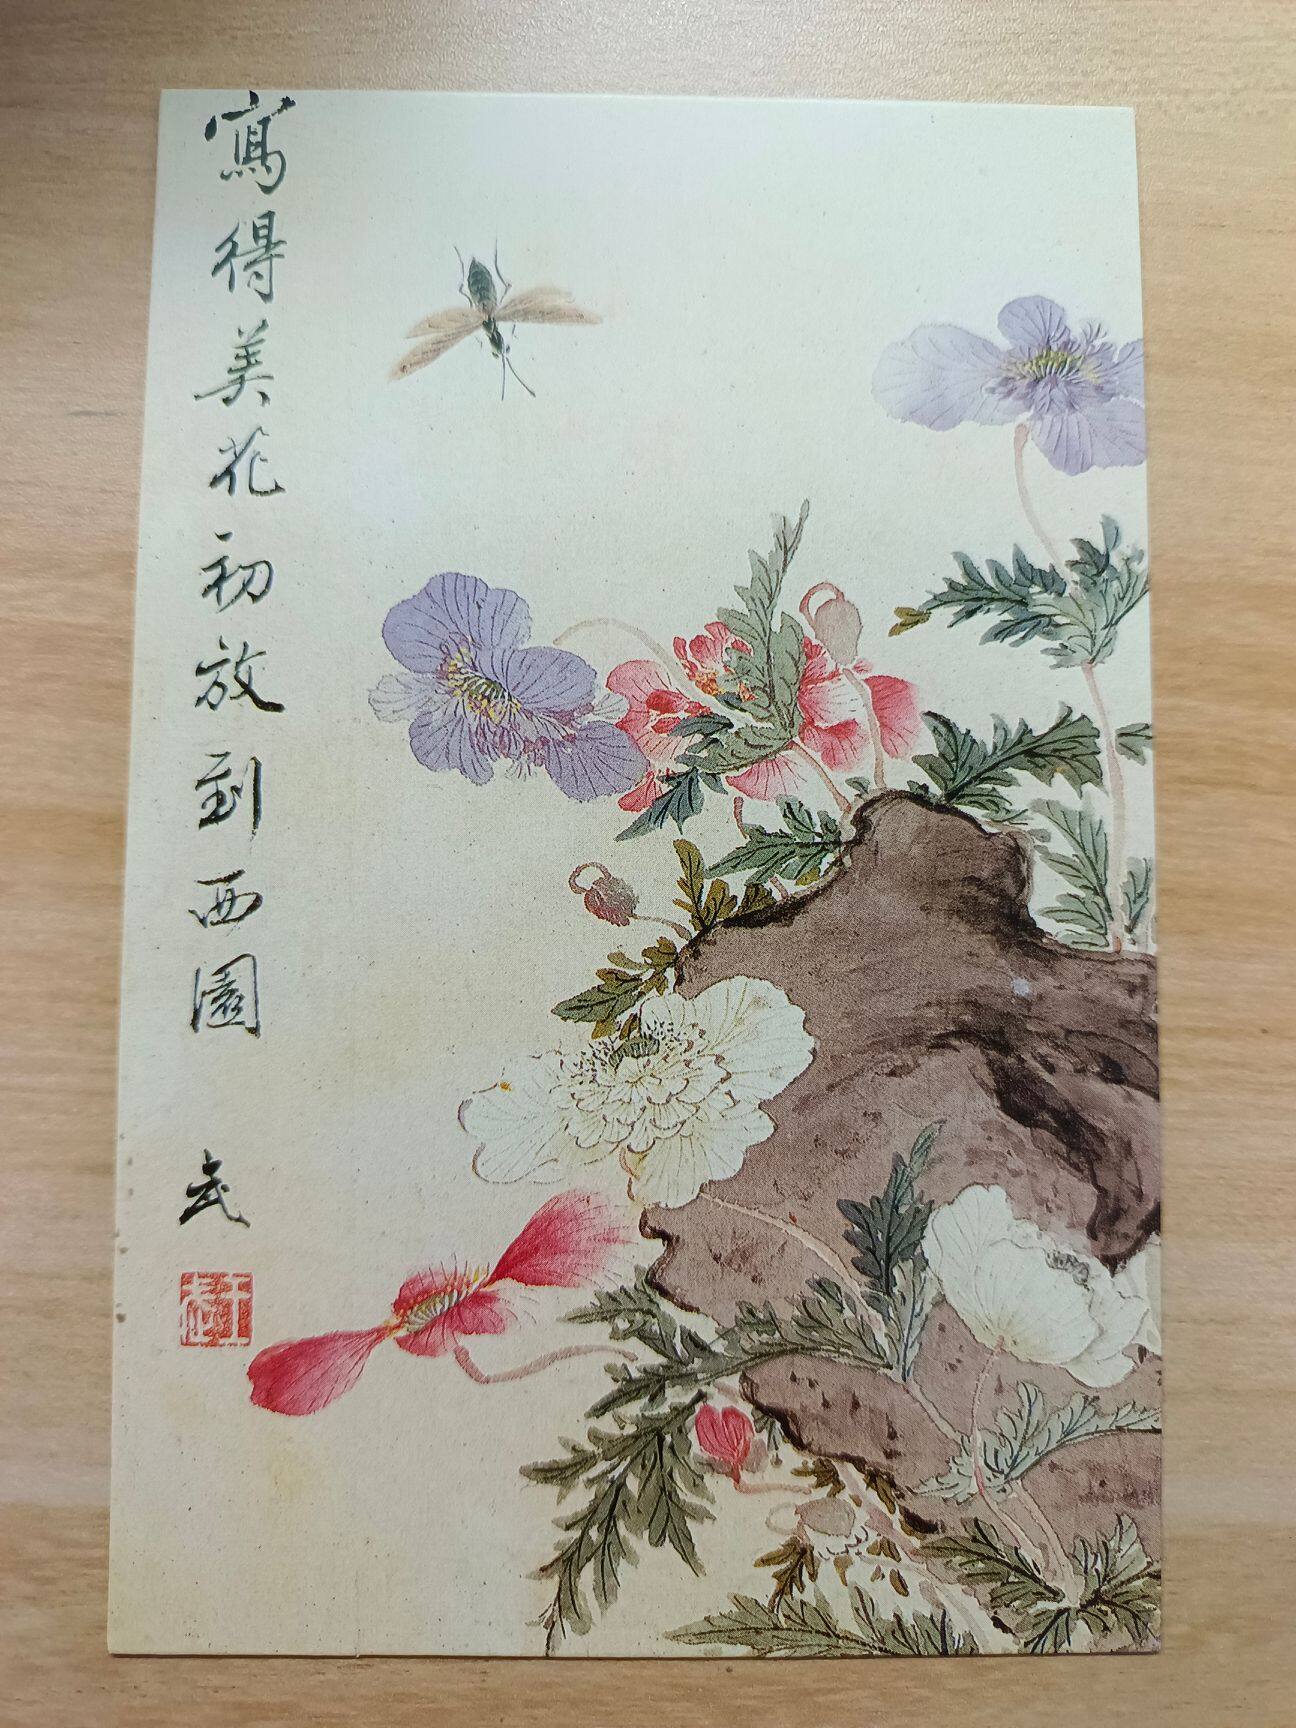 寫得美花初放到西園
武